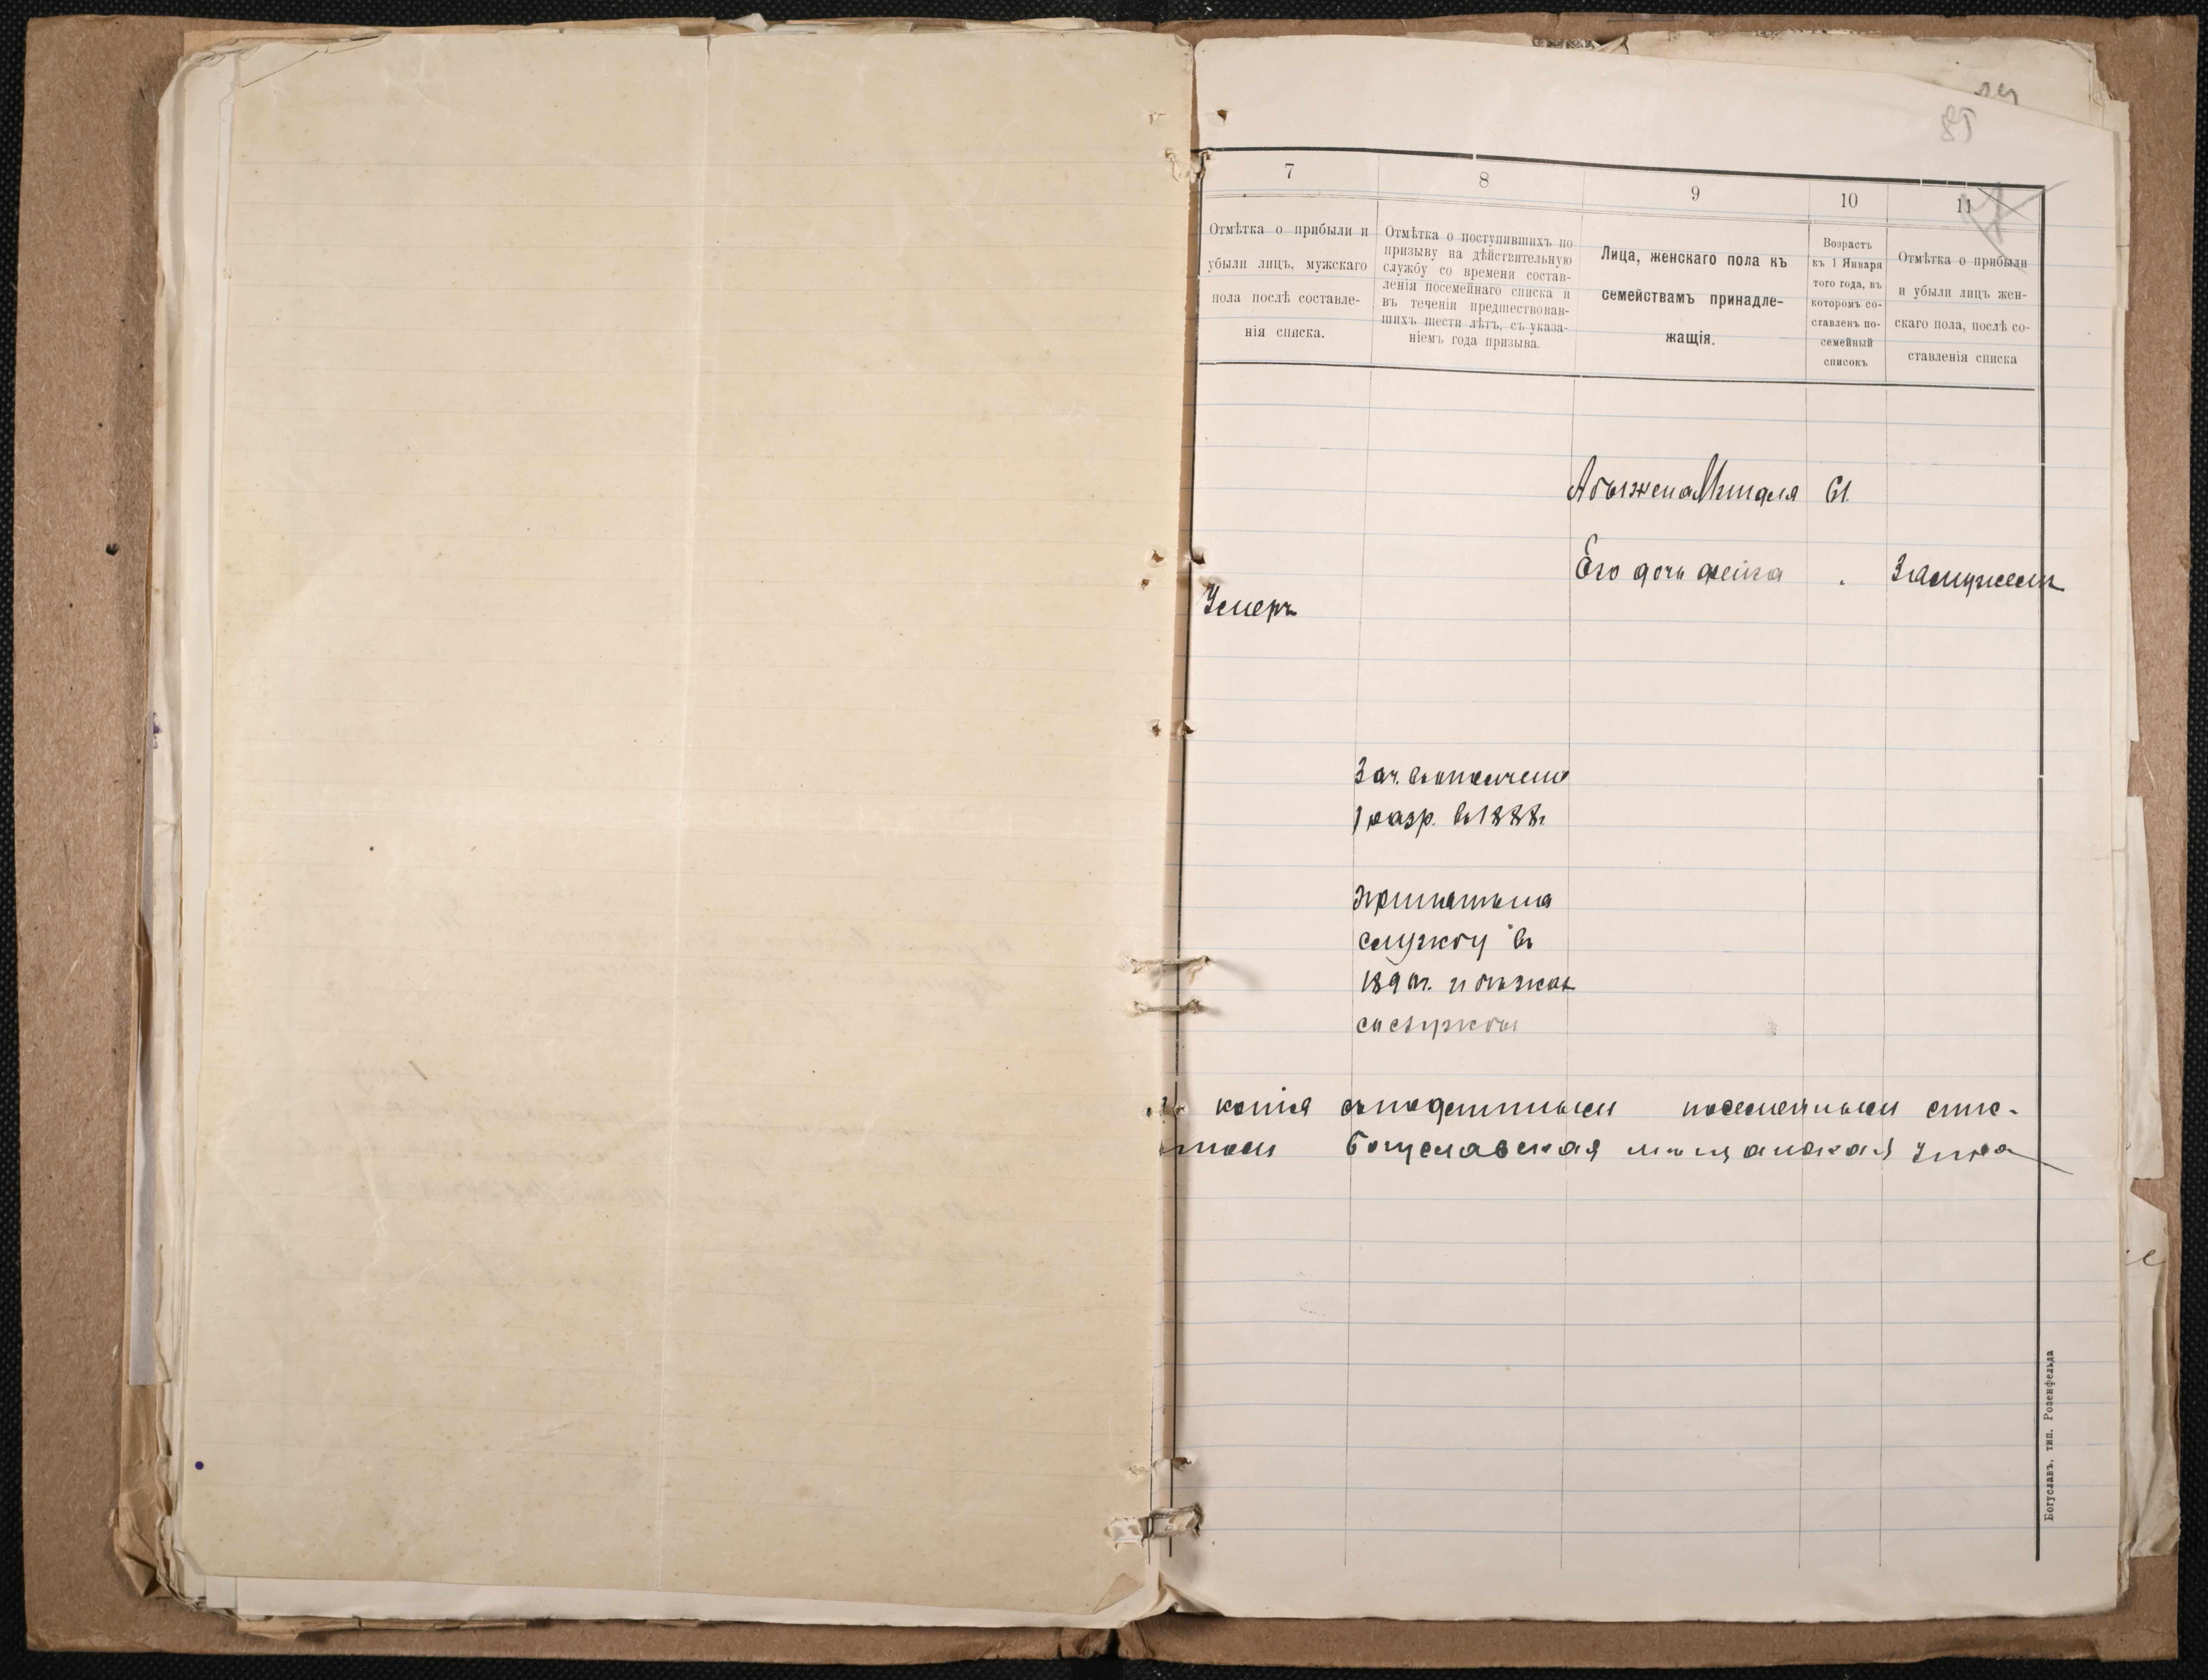 85
7
8
9
10
11
Отмѣтка о прибыли и
убыли лицъ, мужскаго
пола послѣ составле-
нія списка.
Отмѣтка о поступившихъ по
призыву на дѣйствительную
службу со времени состав-
ленія посемейнаго списка и
въ теченіи предшествовав-
шихъ шести лѣтъ, съ указа-
ніемъ года призыва.
Лица, женскаго пола къ
семействамъ принадле-
жащія.
Возрастъ
къ 1 Января
того года, въ
которомъ со-
ставленъ по-
семейный
списокъ
Отмѣтка о прибыли
и убыли лицъ жен-
скаго пола, послѣ со-
ставленія списка
жена 61.
Его дочь Фейга Замужемъ
Умеръ
Зач. въ ополченіе
1 разр. въ 1888г
Принятъ на
службу въ
189 г. и бѣжалъ
со службы
копія съ подлиннымъ посемейнымъ спис-
Богуславская мѣщанская Упра
Богуславъ, тип. Розенфельда